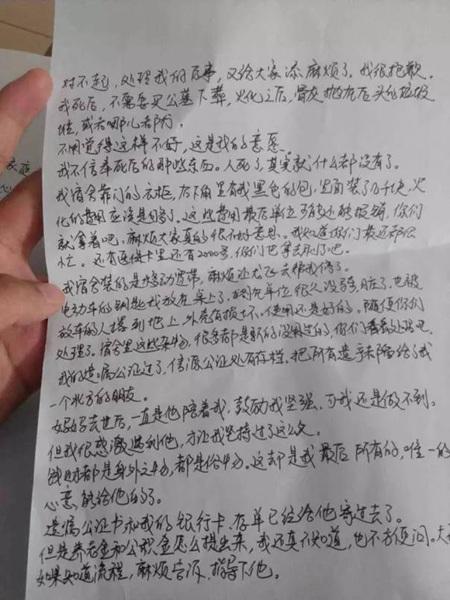 对不起，处理我的后事，又给大家添麻烦了。我很抱歉。
我死后，不需要买公墓下葬，火化之后，骨灰抛放后头的垃圾
堆，或者哪儿都行。
不用觉得这样不好，这是我的意愿。
我不信奉死后的那些东西。人死了，其实就什么都没有了。
我宿舍靠门的衣柜，右下角里有我黑色的包，里面装了几千块，火
化的费用应该是够了。这些费用最后单位 还能报销，你们
就拿着吧，麻烦大家真的很不好意思。我知道你们最近都很
忙。还有医保卡里还有2000多，你们也拿去刷了吧。
我宿舍装的是移动宽带，麻烦 去帮我停了。
电动车的钥匙我放在桌上了，到完单位很久没骑脏了，也被
放车的人撂到地上，外壳有损，不 使用还是好的。随便你们
处理了。宿舍里这些杂物，很多都是新的没用过的，你们看着处理吧。
我的遗嘱公证过了，信源公证处有存档。把所有遗产赠给了我
一个北方的朋友。
妈妈去世后，一直是他陪着我，鼓励我坚强，可我还是做不到。
但我很感激遇到他，才让我坚持过了这么久。
钱财都是身外之物，都是俗物。这却是我最后所有的，唯一的
心意能给他的了。
遗嘱公证书和我的银行卡、存单已经给他寄过去了。
但是养老金和公积金怎么提出来，我还真不知道，也不方便问。大
如果知道流程，麻烦告诉、指导下他。